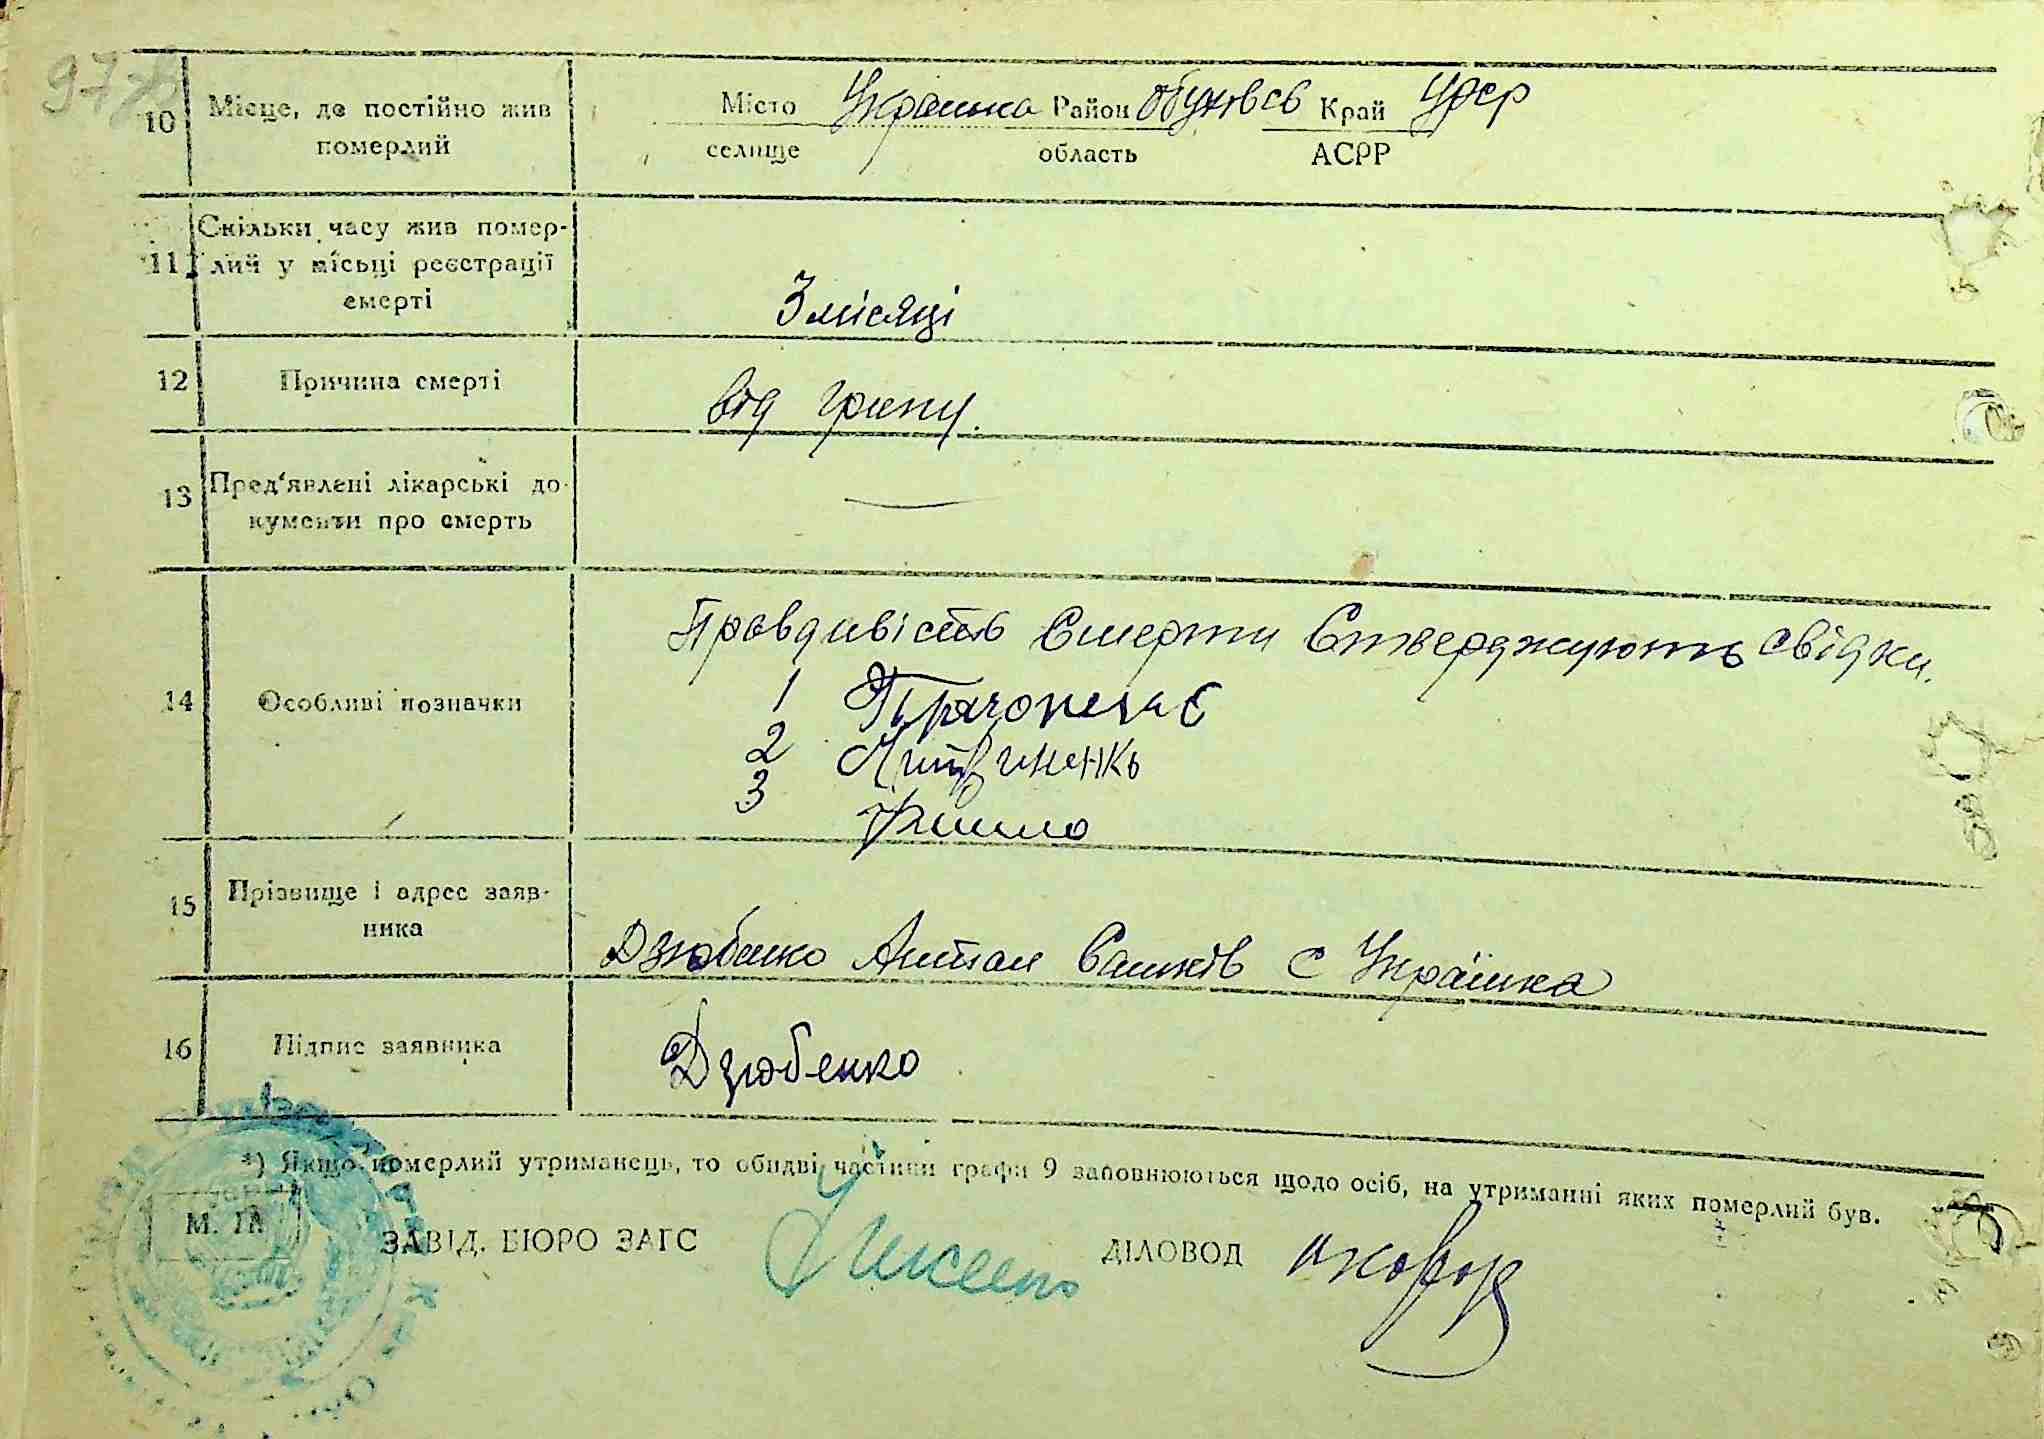 97
10 Місце, де постійно жив померлий
Місто Українка Район Обухвсв Край УРСР
селище область АСРР
11 Скільки часу жив помер-
лий у місьці реєстрації
смерті
3 місяці
12 Причина смерті
від грипу.
13 Пред'явлені лікарські до-
кументи про смерть
—
14 Особливі позначки
Правдивість Смерти Стверджують свідки.
1
2 Литвиненкь
3
15 Прізвище і адрес заяв-
ника
Дзюбенко Антон с Українка
16 Підпис заявника
Дзюбенко
*) Якщо померлий утриманець, то обидві частини графи 9 заповнюються щодо осіб, на утриманні яких померлий був.
М. П.
ЗАВІД. БЮРО ЗАГС ДІЛОВОД